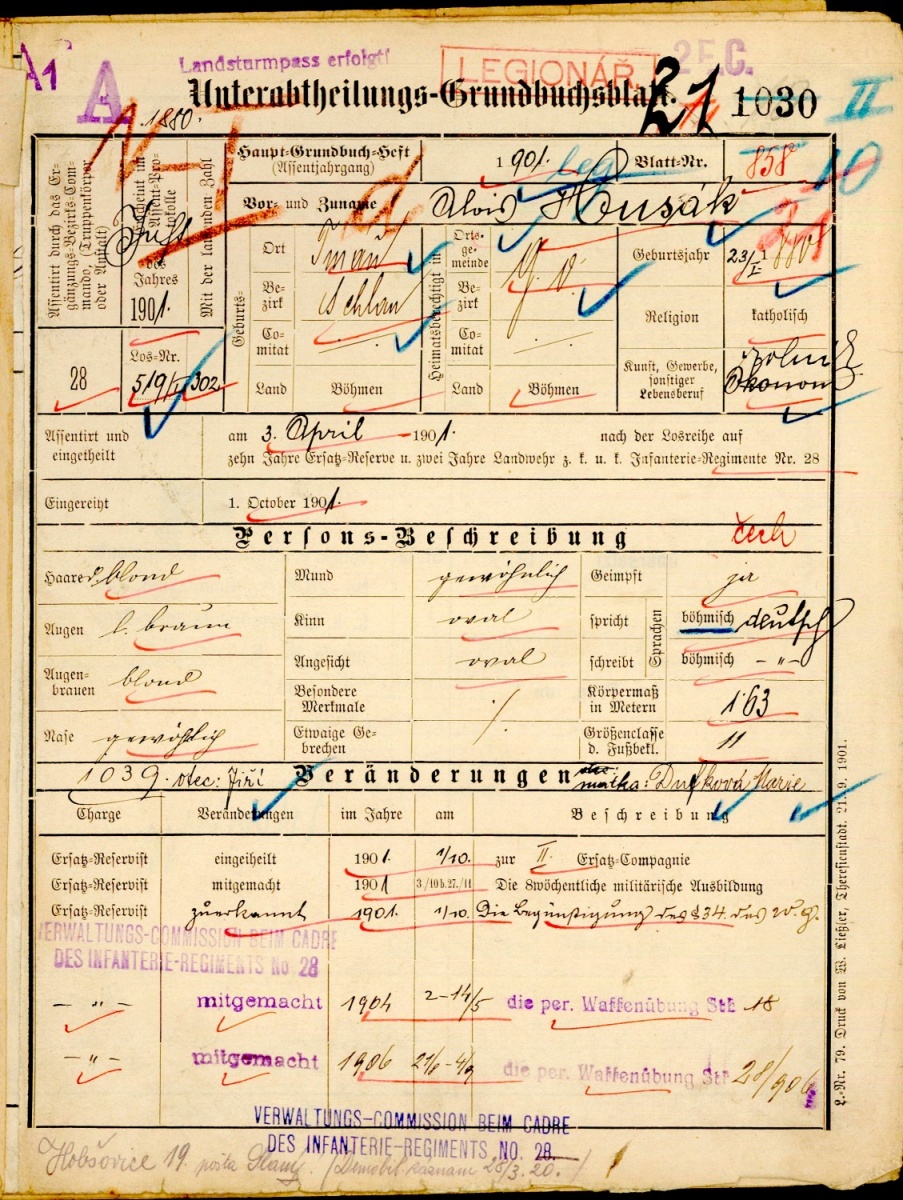 A1
A
Landsturmpass erfolgt!
LEGIONÁŘ
2FC.
Unterabtheilungs-Grundbuchsblatt.
21
1030
II
1880.
10
Assentirt durch das Ergänzungs-Bezirks-Commando, (Truppenkörper oder Anstalt)
28
Erscheint im Assent-Protokolle
des Jahres
1901.
Mit der laufenden Zahl
Los-Nr.
519/I 302
Haupt-Grundbuch-Heft
(Assentjahrgang)
1 901.
Blatt-Nr.
858
Vor- und Zuname
Alois Husák
Geburts-
Ort
Be-
zirk
Schlan
Co-
mitat
Land
Böhmen
Heimatsberechtigt in
Orts-
ge-
meinde
Be-
zirk
Co-
mitat
Land
Böhmen
Geburtsjahr
23/I 1880
Religion
katholisch
Kunst, Gewerbe,
sonstiger
Lebensberuf
Ökonom
Assentirt und
eingetheilt
am 3. April 1901.
nach der Losreihe auf
zehn Jahre Ersatz-Reserve u. zwei Jahre Landwehr z. k. u. k. Infanterie-Regimente Nr. 28
Eingereiht
1. October 1901.
Persons-Beschreibung
čech
Haare d. blond
Mund gewöhnlich
Geimpft ja
Augen l. braun
Kinn oval
spricht
Sprachen
böhmisch deutsch
Angesicht oval
schreibt
böhmisch -"-
Augen-
brauen blond
Besondere
Merkmale
Körpermaß
in Metern 1·63
Nase gewöhnlich
Etwaige Ge-
brechen
Größenclasse
d. Fußbekl. 11
1039. otec: Jiří
Veränderungen
matka: Dufková Marie
Charge
Veränderungen
im Jahre
am
Beschreibung
Ersatz-Reservist eingetheilt 1901. 1/10. zur II. Ersatz-Compagnie
Ersatz-Reservist mitgemacht 1901 3/10 b. 27./11 Die 8wöchentliche militärische Ausbildung
Ersatz-Reservist zuerkannt 1901. 1/10. Die Begünstigung des § 34. des W. G.
VERWALTUNGS-COMMISSION BEIM CADRE
DES INFANTERIE-REGIMENTS No 28
-"- mitgemacht 1904 2-14/5 die per. Waffenübung Stb 18
-"- mitgemacht 1906 die per. Waffenübung Stb 28/906
VERWALTUNGS-COMMISSION BEIM CADRE
DES INFANTERIE-REGIMENTS No. 28.
Hobšovice 19. pošta
28/3.20.
L.-Nr. 79. Druck von W. Ließler, Theresienstadt. 21. 9. 1901.